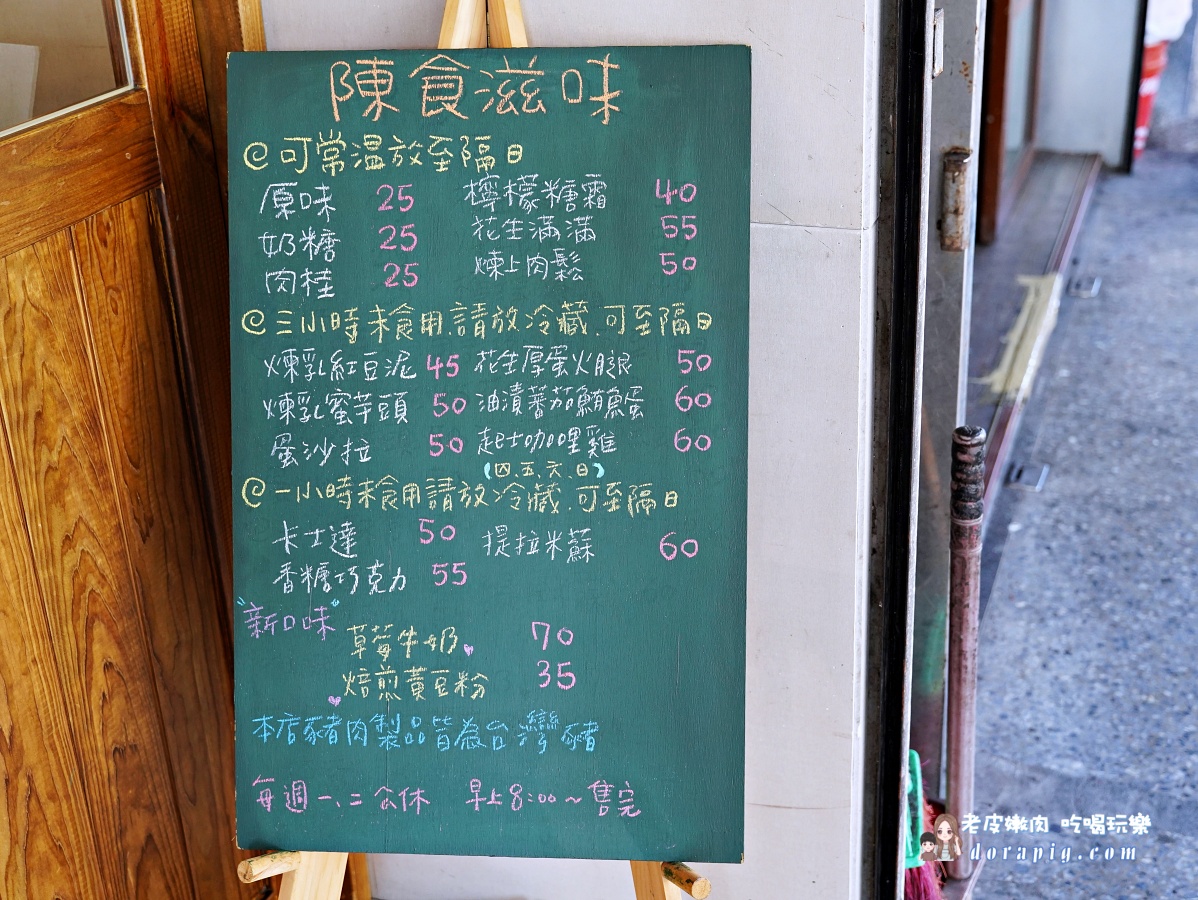 陳食滋味
@可常温放至隔日
原味 25 檸檬糖霜 40
奶糖 25 花生滿滿 55
肉桂 25 煉上肉鬆 50
@三小時未食用.請放冷藏.可至隔日
煉乳紅豆泥 45 花生厚蛋火腿 50
煉乳蜜芋頭 50 油漬蕃茄鮪魚蛋 60
蛋沙拉 50 起士咖哩雞 60
(四.五.六.日)
@一小時未食用請放冷藏.可至隔日
卡士達 50 提拉米蘇 60
香糖巧克力 55
"新口味"
草莓牛奶 70
焙煎黃豆粉 35
本店豬肉製品皆為台灣豬
每週一、二公休 早上8:00~售完
老皮嫩肉 吃喝玩樂
dorapig.com